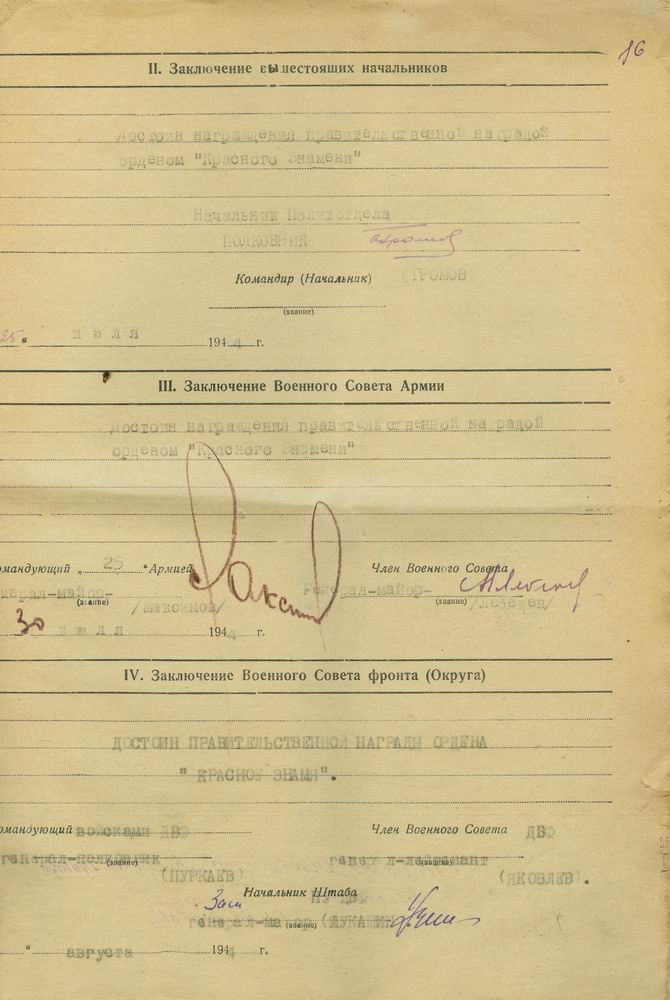 16
II. Заключение вышестоящих начальников
Достоин награждения правительственной наградой
орденом "Красного Знамени"
Начальник Политотдела
ПОЛКОВНИК
Командир (Начальник) (ГРОМОВ
(звание)
25 " июля 1944 г.
III. Заключение Военного Совета Армии
Достоин награждения правительственной наградой
орденом "Красного Знамени"
омандующий „ 25 " Армией Член Военного Совета
нерал-майор- Генерал-майор-
(звание) /Максимов/ (звание) /Лебедев/
30 июля 1944 г.
IV. Заключение Военного Совета фронта (Округа)
ДОСТОИН ПРАВИТЕЛЬСТВЕННОЙ НАГРАДЫ ОРДЕНА
" КРАСНОЕ ЗНАМЯ".
омандующий войсками ДВФ Член Военного Совета ДВФ
генерал-полковник генерал-лейтенант
(звание) (звание)
(ПУРКАЕВ) (ЯКОВЛЕВ).
Начальник Штаба
Зам
генерал-майор (ЛУКАШИН
(звание)
" августа 1944 г.